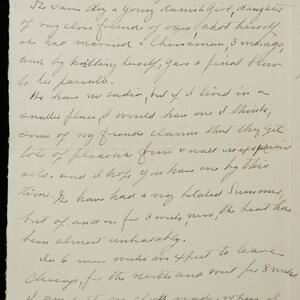 The same day a young Danish Girl, daughter
of very close friends of ours shot herself
she had married a Chinaman, 3 mds. ago,
and by killing herself, gave a final blow
to her parents.
We have no radio, but if I lived in a
smaller place, I would have one I think,
some of my friends claims that they get
lots of pleasure from small
sets. and I hope you have one by this
time. We have had a very belated Summer,
but off and on for 3 weeks, now, the heat has
been almost unbearably.
In 6 more weeks we expect to leave
Chicago, for the north and west for 8 weeks